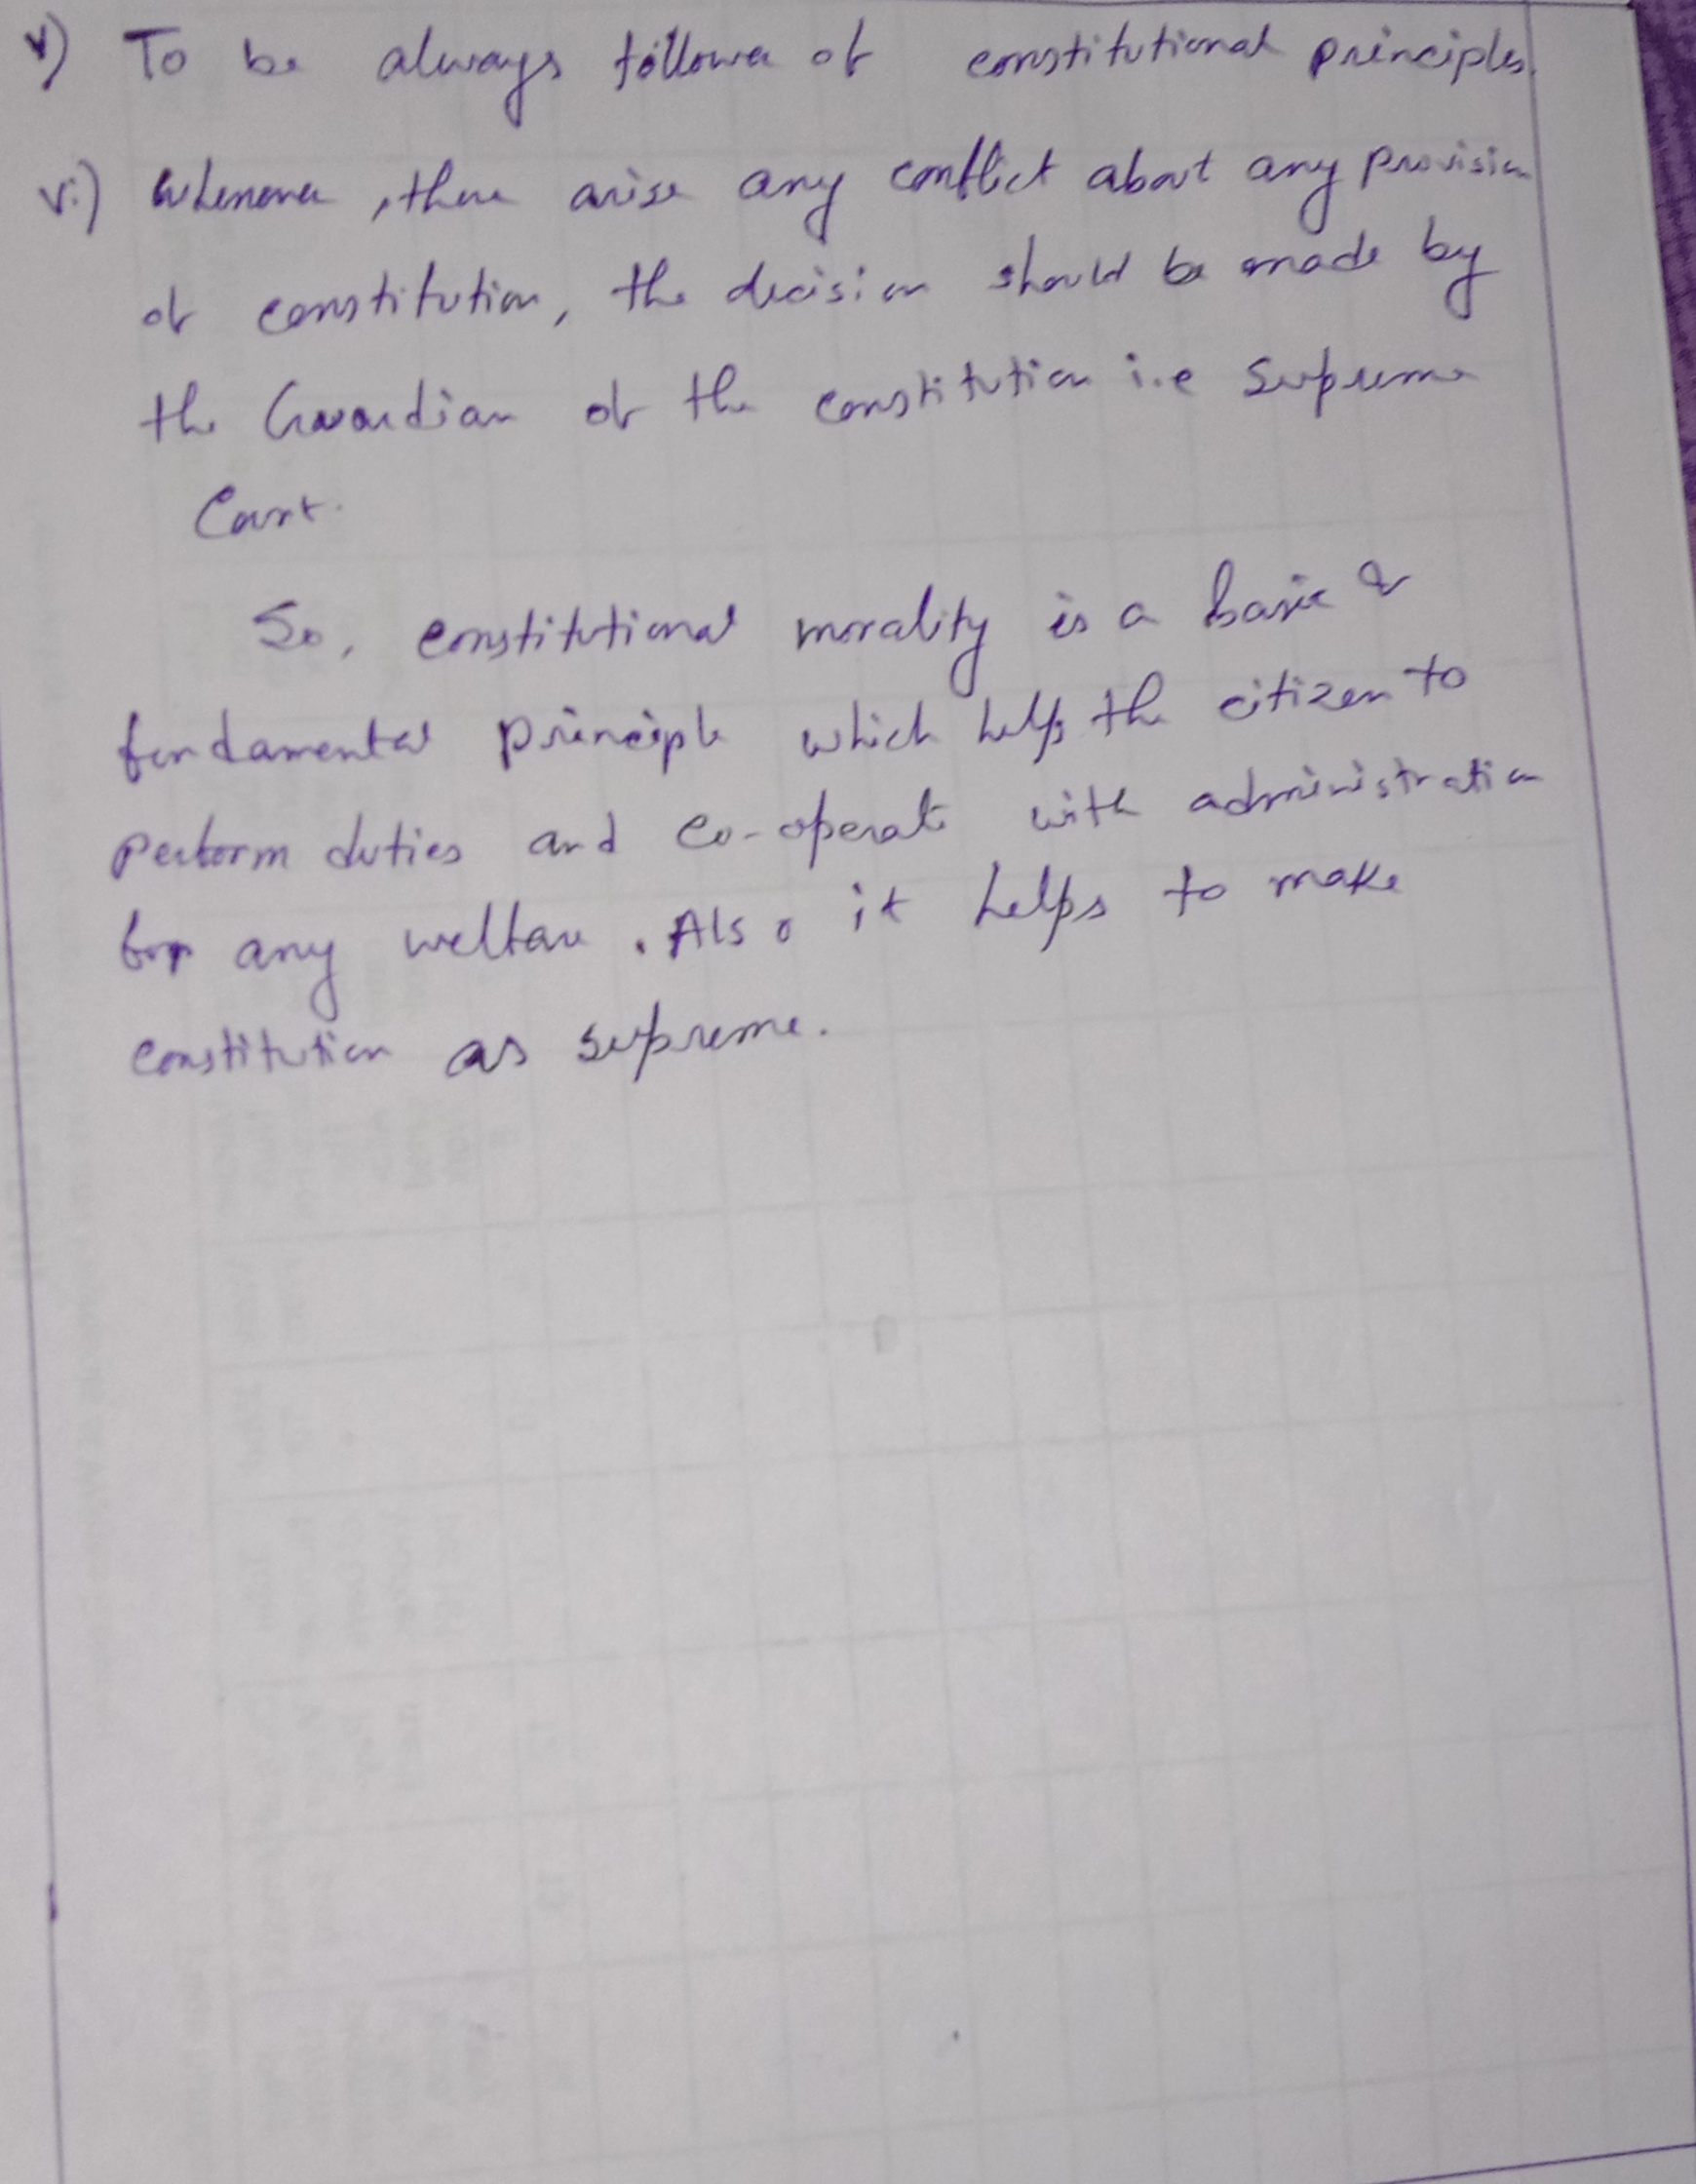 v) To be always follower of constitutional principles.
vi) Whenever, there arise any conflict about any provision
of constitution, the decision should be made by
the Guardian of the constitution i.e Supreme
Court.
So, constitutional morality is a basic &
fundamental principle which helps the citizen to
perform duties and co-operate with administration
for any welfare. Also it helps to make
constitution as supreme.